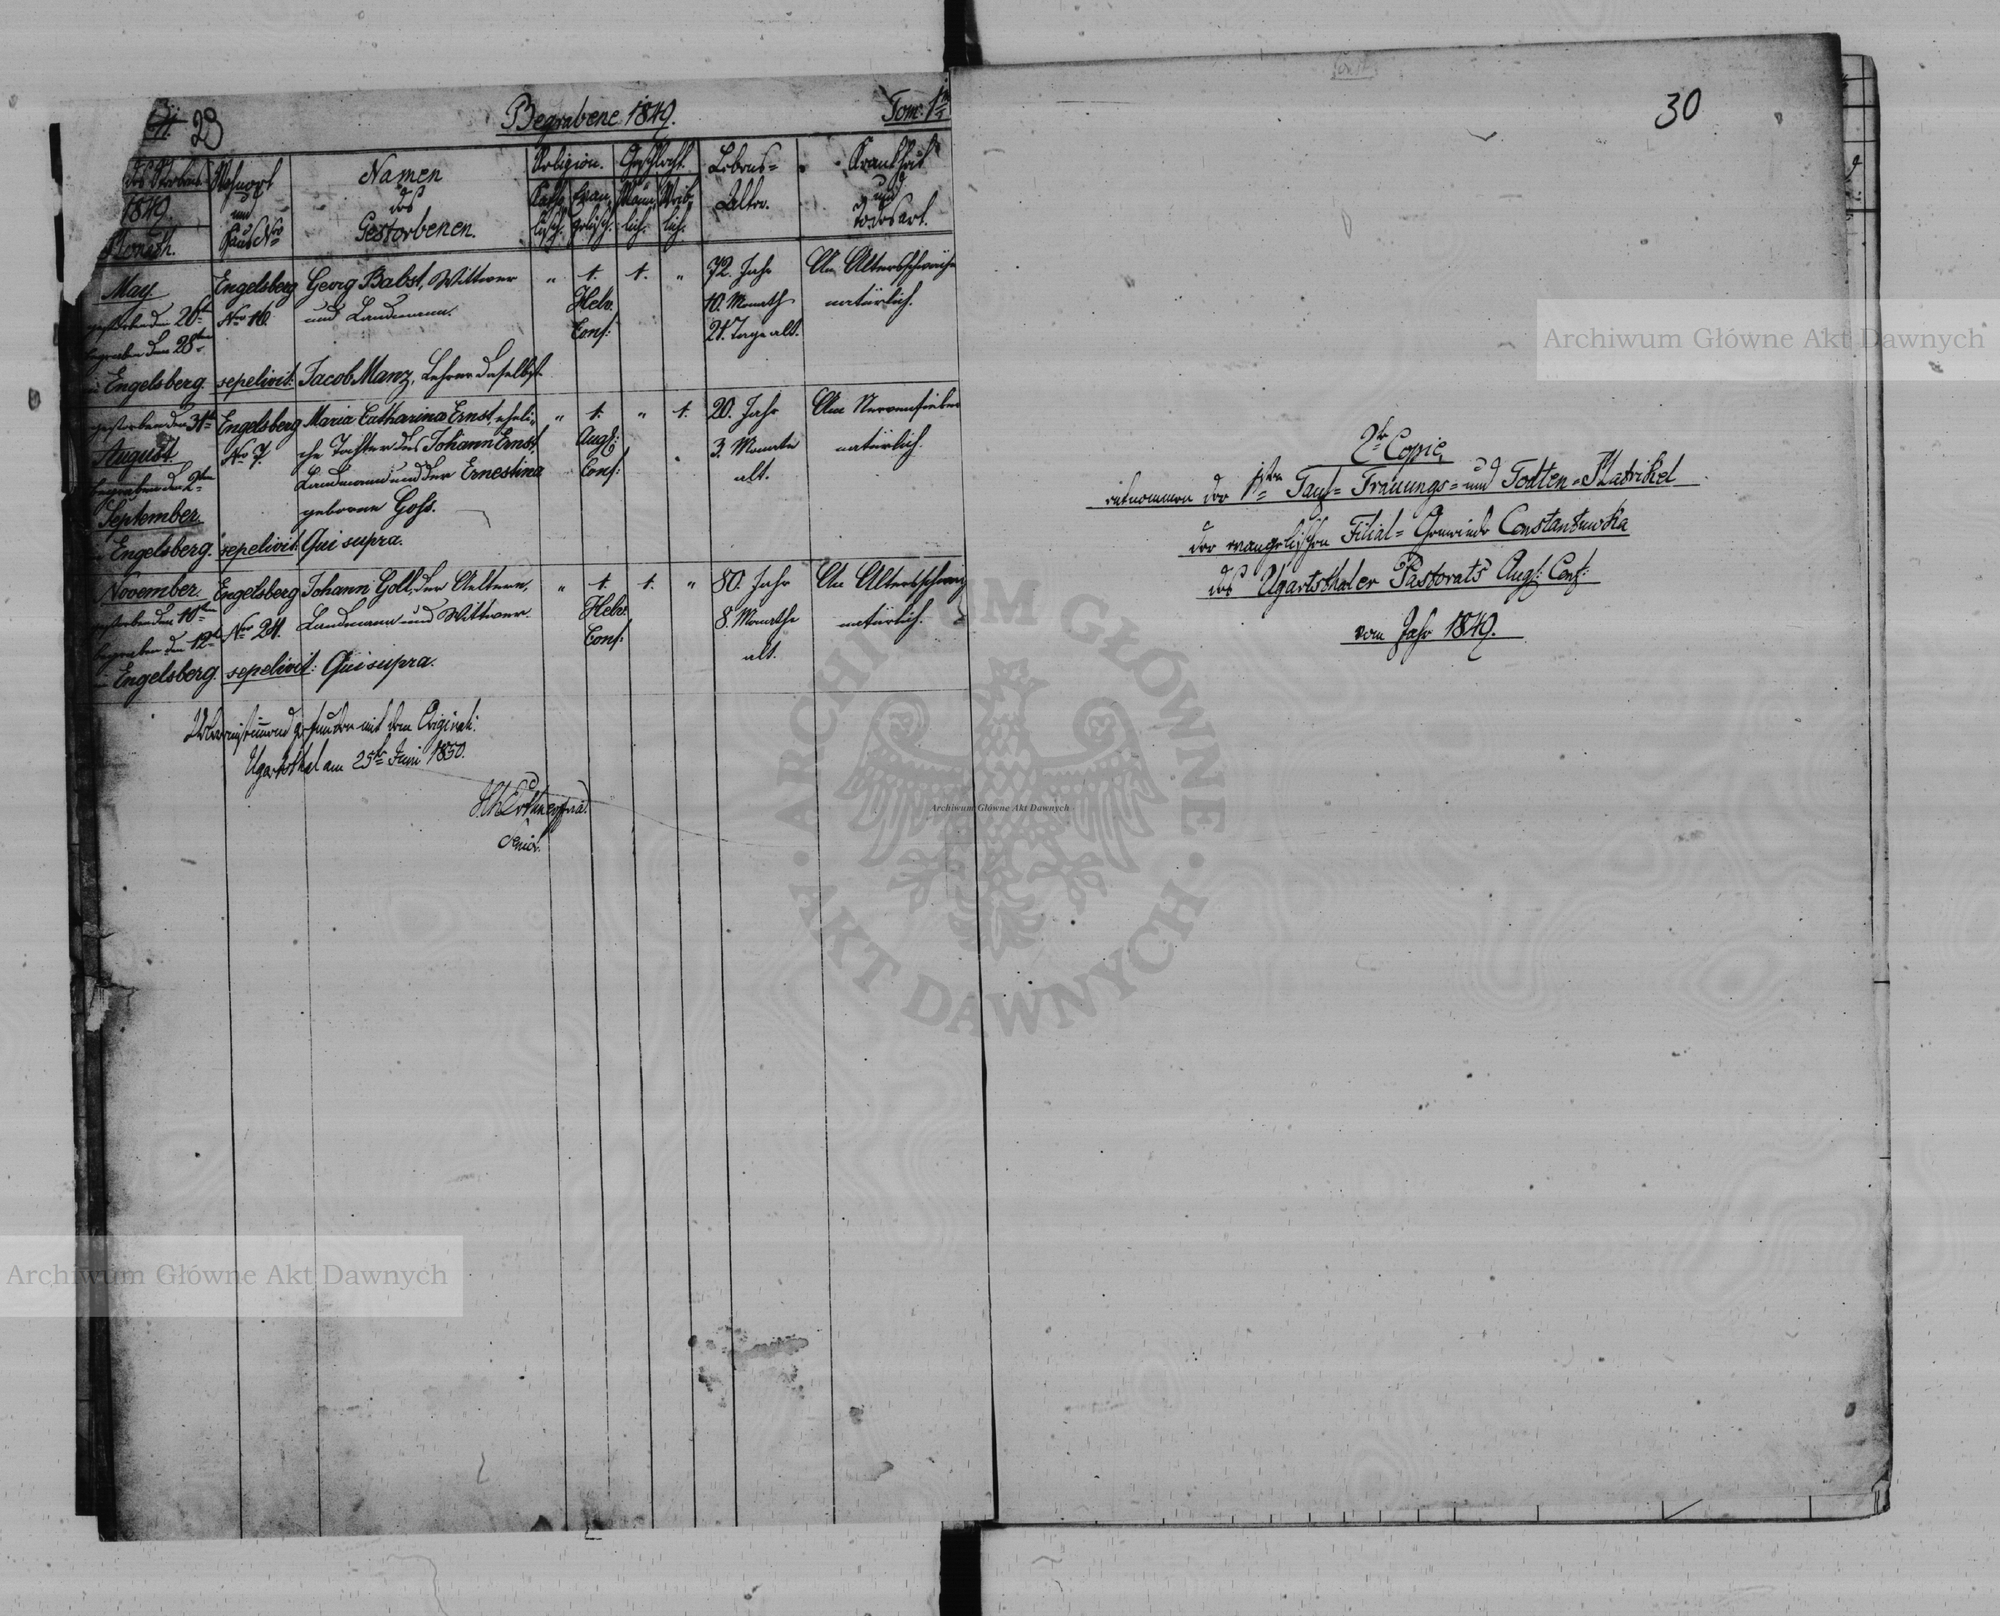 23
Begrabene 1849.
Tom: 1
des Sterbens
1849.
Monath.
Wohnort
und
Haus Nro
Namen
des
Gestorbenen.
Religion.
Katho-
lisch.
Evan-
gelisch.
Geschlecht.
Männ-
lich.
Weib-
lich.
Lebens=
Alter.
Krankheit
und
Todesart.
May
gestorben den 26ten
begraben den 28ten
Engelsberg.
Engelsberg
Nro 16.
sepelivit:
Georg Babst, Wittwer
und Landmann.
Jacob Manz, Lehrer daselbst
"
1.
Helv.
Conf:
1.
"
72. Jahr
10. Monath
21. Tage alt.
An Altersschwäche
natürlich.
gestorben den 31ten
August.
begraben den 2ten
September.
Engelsberg.
Engelsberg
Nro 7.
sepelivit:
Maria Catharina Ernst, eheli-
che Tochter des Johann Ernst,
Landmann und der Ernestina
geborene Gohs.
Qui supra.
"
1.
Augs:
Conf:
"
1.
20. Jahr
3. Monate
alt.
Am Nervenfieber
natürlich.
November.
gestorben den 10ten
begraben den 12ten
Engelsberg.
Engelsberg
Nro 24.
sepelivit:
Johann Goll, der Aeltere,
Landmann und Wittwer.
Qui supra.
"
1.
Helv.
Conf:
1.
"
80. Jahr
8. Monathe
alt.
An Altersschwäche
natürlich.
Übereinstimmend gefunden mit dem Original:
Ugartsthal am 25ten Juni 1850.
Senior.
30
2te Copie,
entnommen der 1sten Tauf= Trauungs= und Todten=Matrikel
der evangelischen Filial=Gemeinde Constantuwka
des Ugartsthaler Pastorats Augs: Conf:
vom Jahr 1849.
Archiwum Główne Akt Dawnych
Archiwum Główne Akt Dawnych
Archiwum Główne Akt Dawnych
ARCHIWUM GŁÓWNE
AKT DAWNYCH